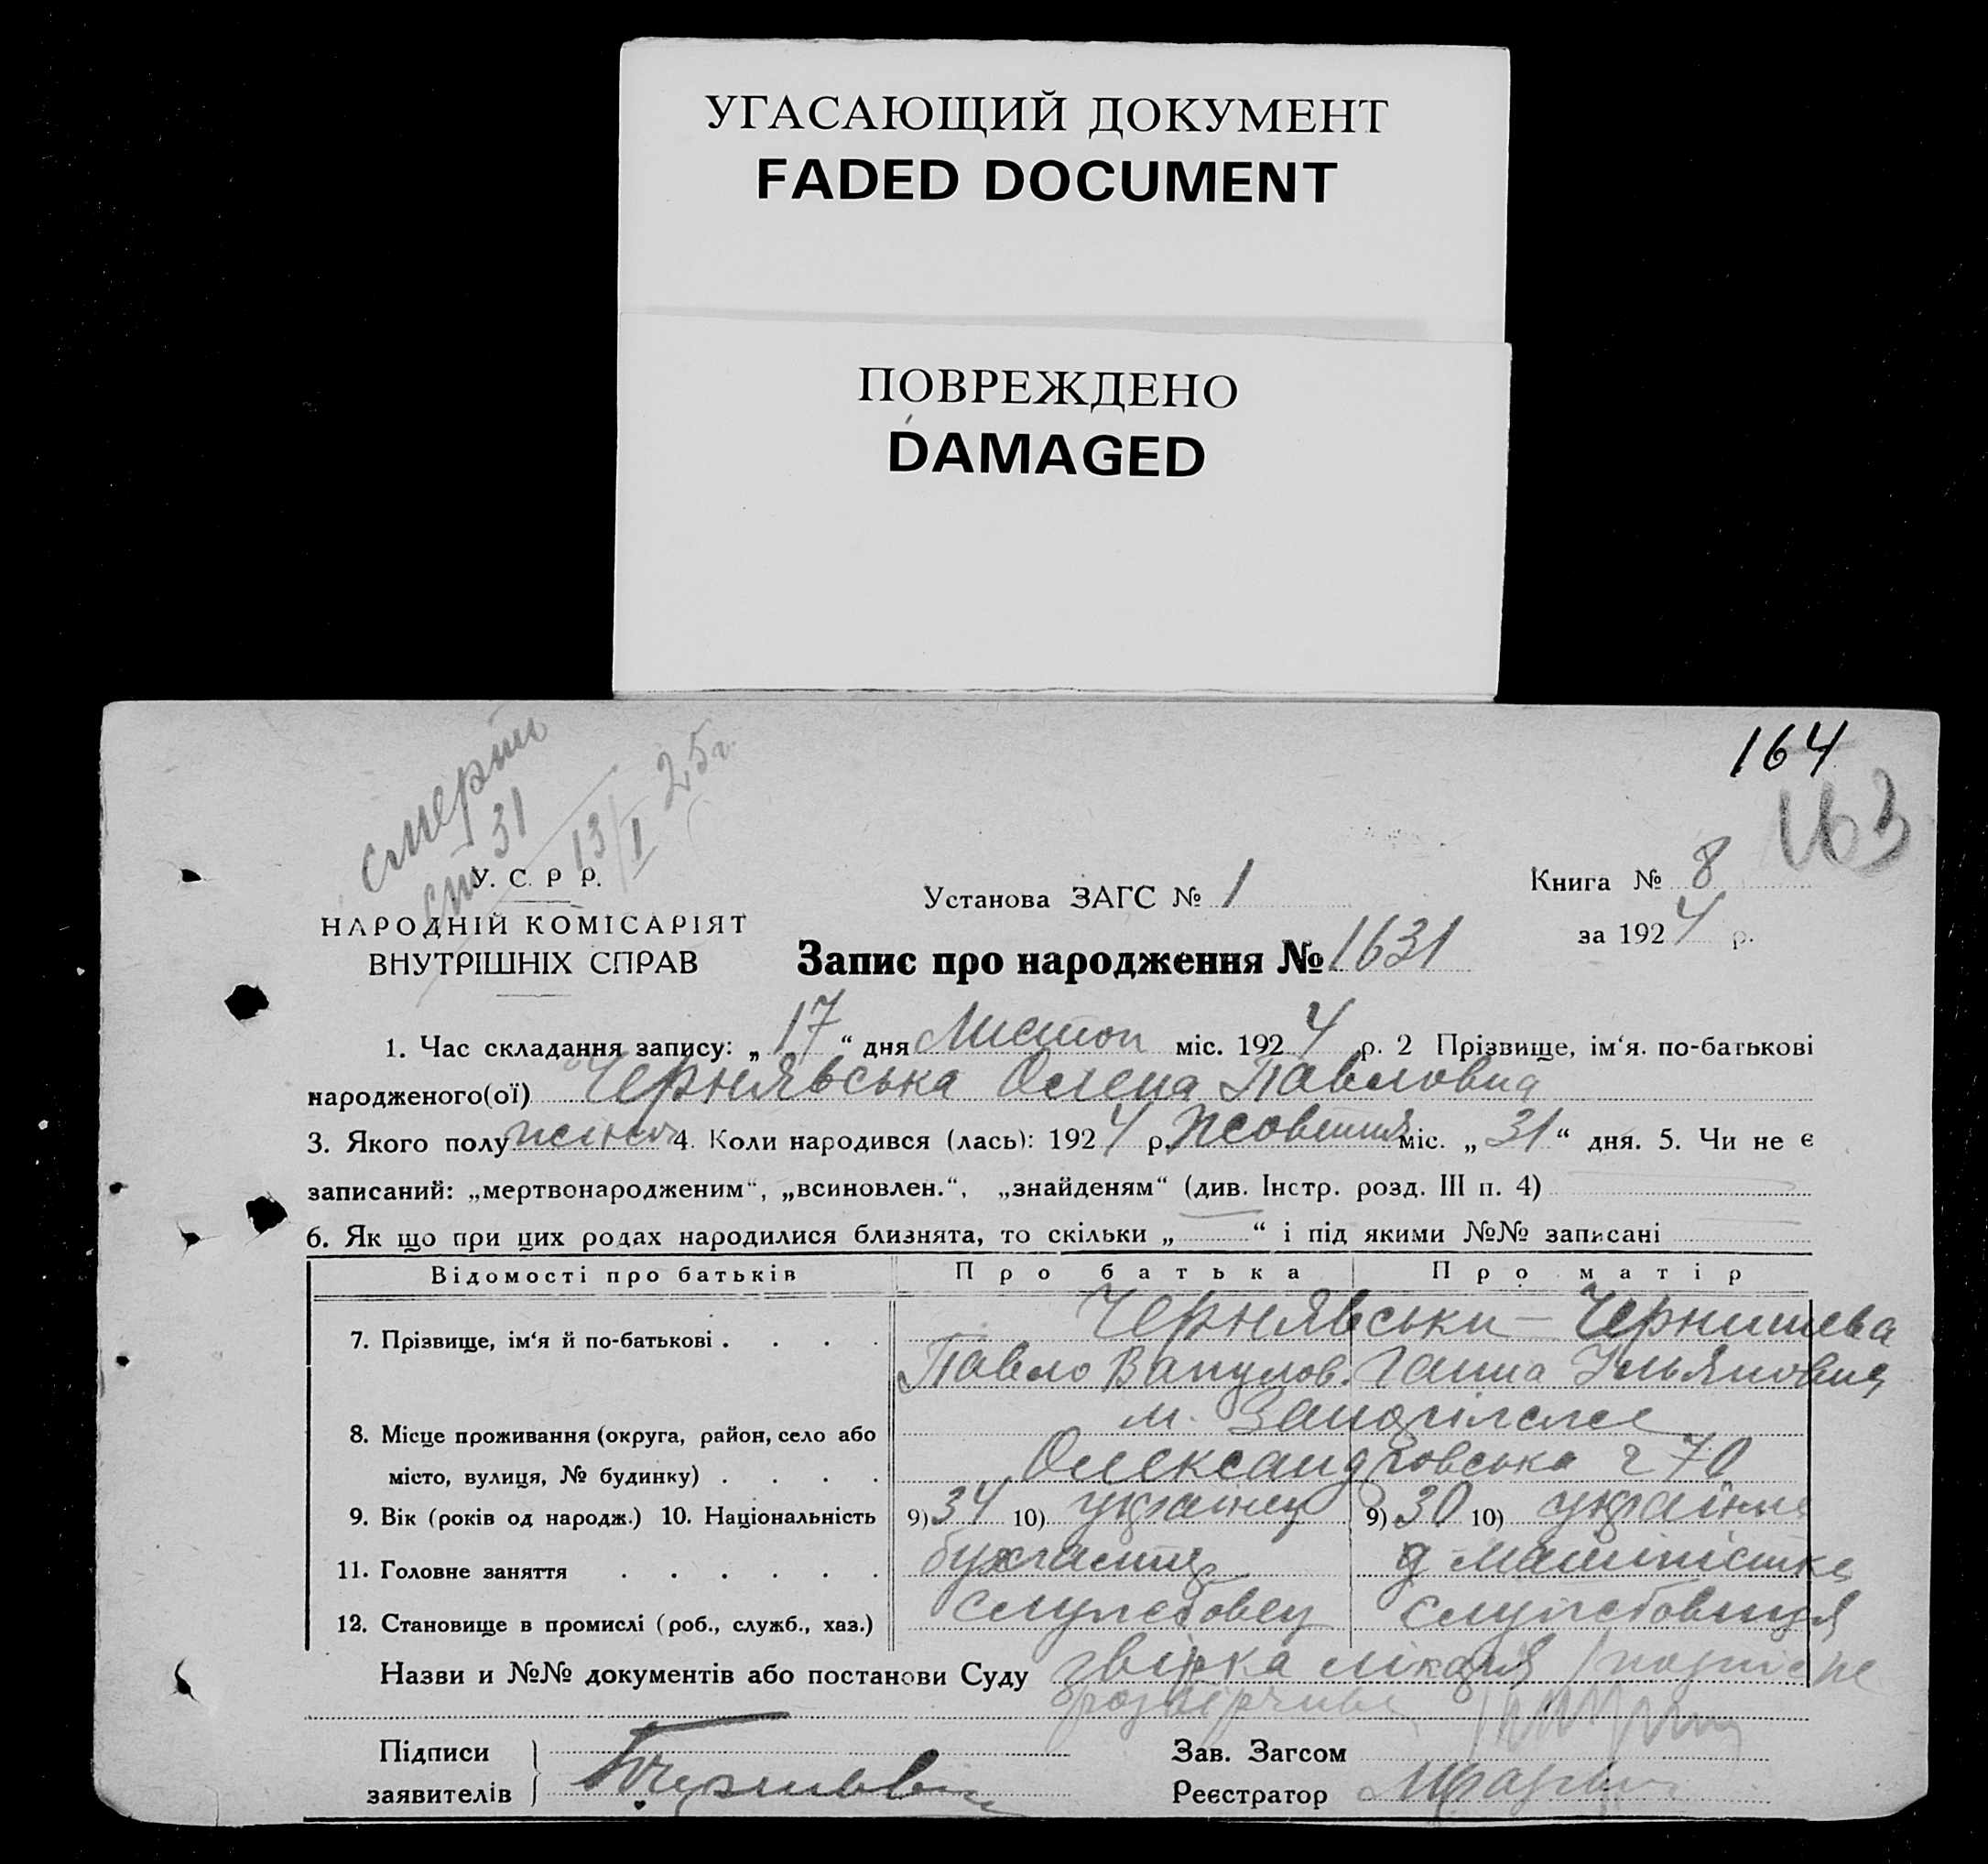 УГАСАЮЩИЙ ДОКУМЕНТ
FADED DOCUMENT
ПОВРЕЖДЕНО
DAMAGED
164
163
смерти
ст 31
13/I 25 г.
У. С. Р Р.
НАРОДНІЙ КОМІСАРІЯТ
ВНУТРІШНІХ СПРАВ
Установа ЗАГС № 1
Книга № 8
за 1924 р.
Запис про народження № 1631
1. Час складання запису: „17“ дня Листоп міс. 1924 р. 2 Прізвище, ім‘я. по-батькові
народженого(ої) Чернявська Олена Павловна
3. Якого полу жіноч 4. Коли народився (лась): 1924 р. Жовтня міс. „31“ дня. 5. Чи не є
записаний: „мертвонародженим“, „всиновлен.“, „знайденям“ (див. Інстр. розд. III п. 4)
6. Як що при цих родах народилися близнята, то скільки „ “ і під якими №№ записані
Відомості про батьків Про батька Про матір
7. Прізвище, ім‘я й по-батькові . . . . Чернявськи – Чернишева
Павло Вакулов. Ганна Ульяновна
8. Місце проживання (округа, район, село або м.
місто, вулиця, № будинку) . . . . Олександровська 70
9. Вік (років од народж.) 10. Національність 9) 34 10) українец 9) 30 10) українка
11. Головне заняття . . . . . . бухгалтер машиністка
12. Становище в промислі (роб., служб., хаз.) службовец службовиця
Назви и №№ документів або постанови Суду лікаря
Підписи
заявителів
Зав. Загсом
Реєстратор